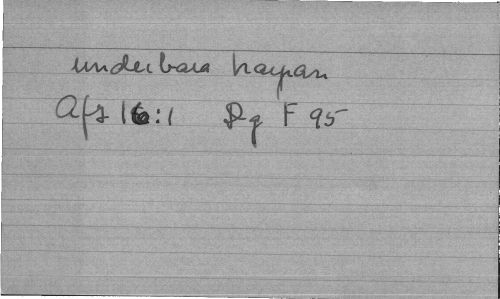 underbara harpan
Afs 16:1 Rg F 95